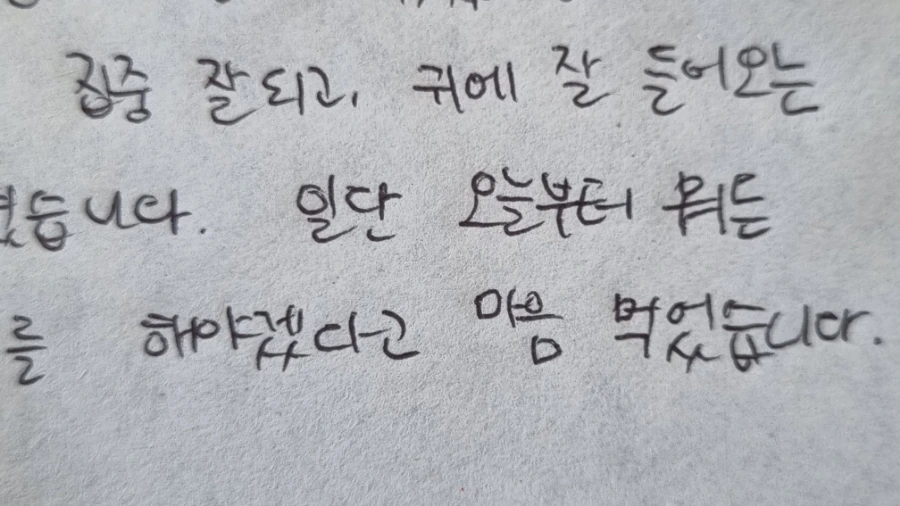 집중 잘되고, 귀에 잘 들어오는
습니다. 일단 오늘부터 뭐든
를 해야겠다고 마음 먹었습니다.